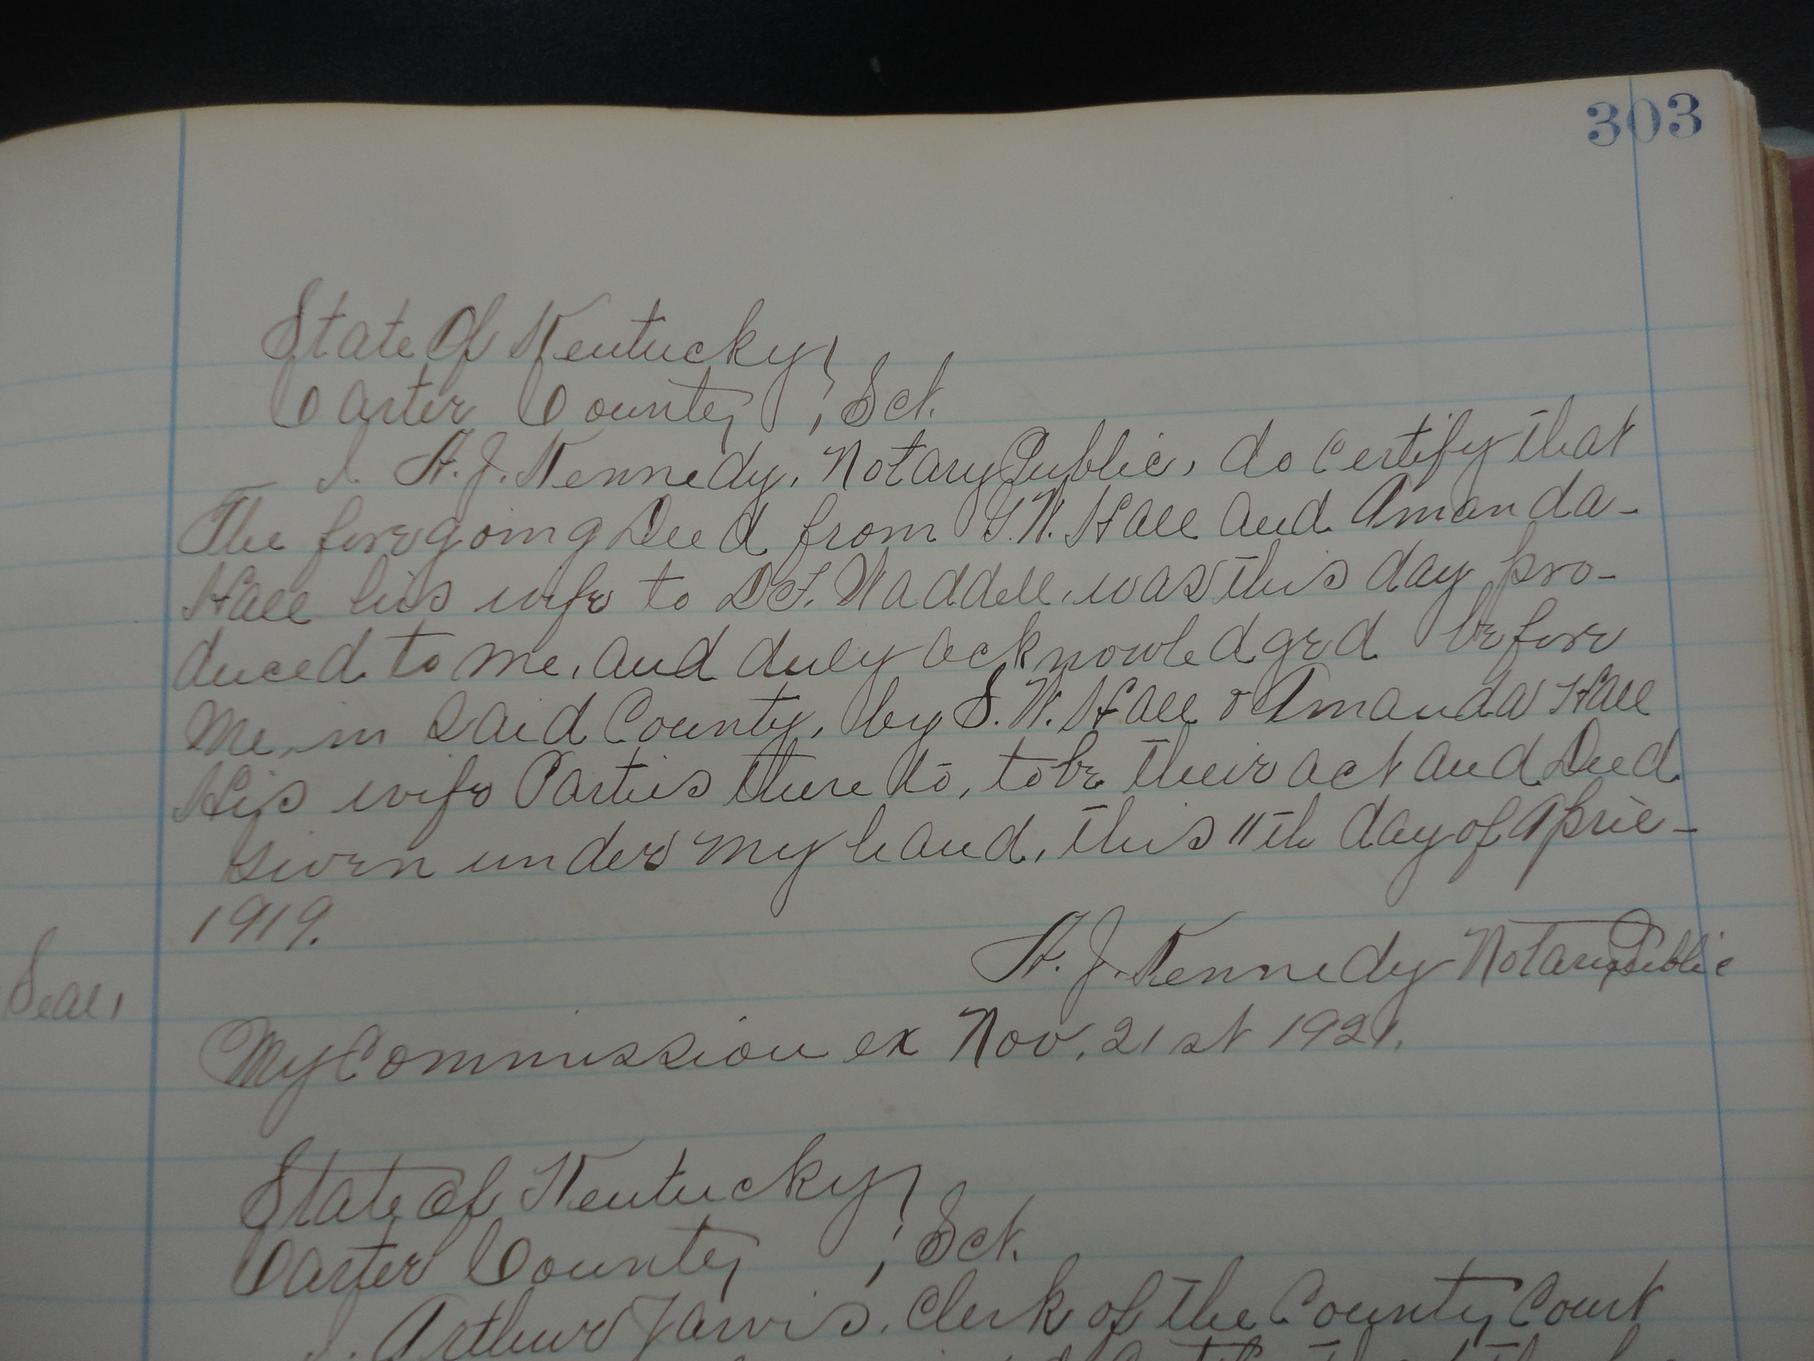 303
State Of Kentucky
Carter County ; Sct.
I. H. J. Kennedy, Notary Public, do certify that
The foregoing Deed from S. W. Hall and Amanda
Hall his wife to D. F. Waddell, was this day pro-
duced to me, and duly acknowledged before
Me, in Said County, by S. W. Hall & Amanda Hall
His wife Parties there to, to be their act and Deed
Given under my hand, this 11th day of April
1919.
H. J. Kennedy Notary Public
Seal,
My Commission ex Nov. 21 st 1921.
State of Kentucky
Carter County ; Sct.
I. Arthur Jarvis, Clerk of the County Court